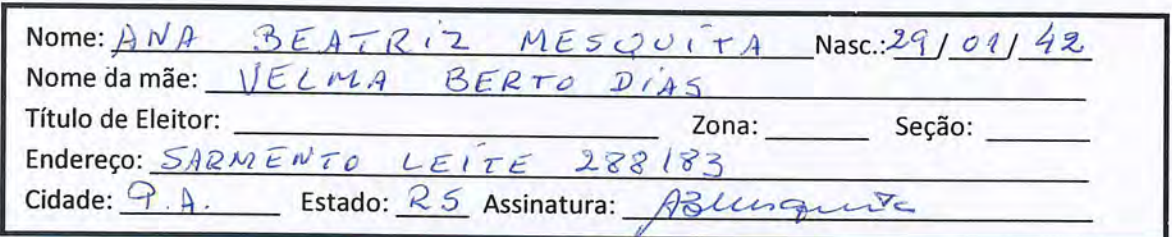 Nome: ANA BEATRIZ MESQUITA Nasc.: 29/01/42
Nome da mãe: VELMA BERTO DIAS
Título de Eleitor: Zona: Seção:
Endereço: SARMENTO LEITE 288/83
Cidade: P.A. Estado: RS Assinatura: ABMesquita